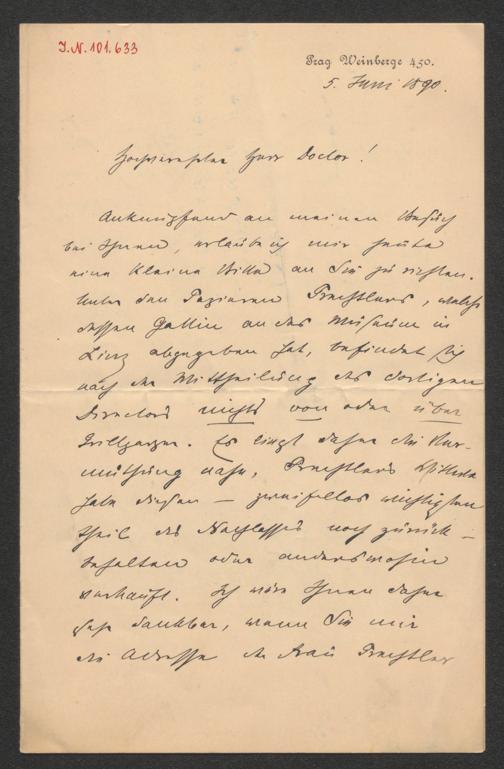 J.N. 101.633
Prag Weinberge 450.
5. Juni 1890.
Hochverehrter Herr Doctor!
Anknüpfend an meinen Besuch
bei Ihnen, erlaube ich mir heute
eine kleine Bitte an Sie zu richten.
Unter den Papieren Prechtlers, welche
dessen Gattin an das Museum in
Linz abgegeben hat, befindet sich
nach der Mittheilung des dortigen
Directors nichts von oder über
Grillparzer. Es liegt daher die Ver-
muthung nahe, Prechtlers Witwe
habe diesen – zweifellos wichtigsten
Theil des Nachlasses noch zurück-
behalten oder anderswohin
verkauft. Ich wäre Ihnen daher
sehr dankbar, wenn Sie mir
die Adresse der Frau Prechtler